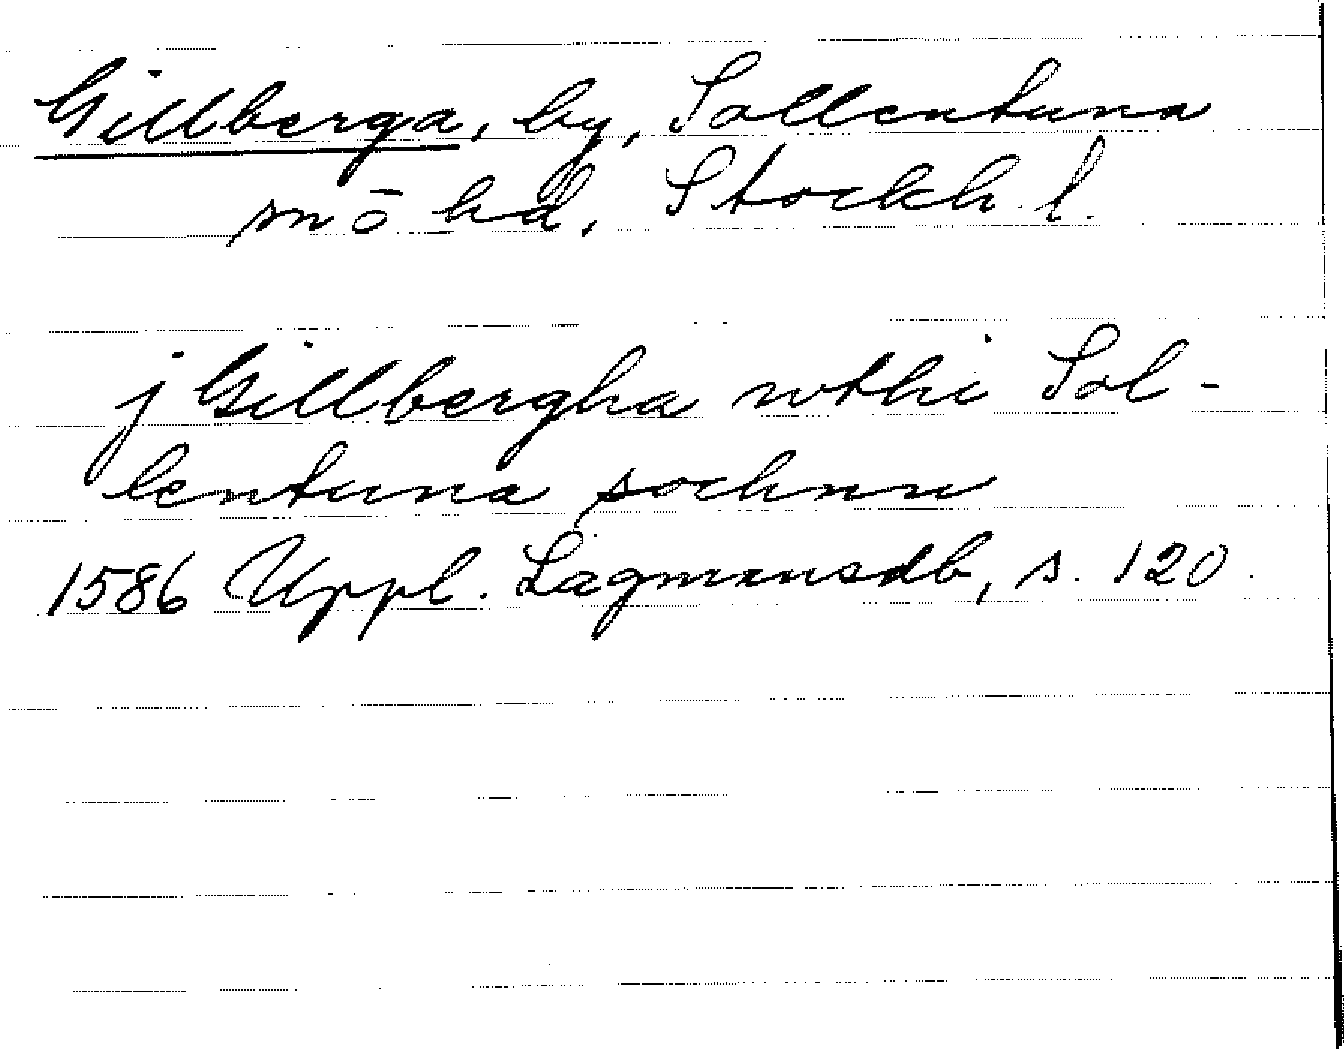 Gillberga, by, Sollentuna
sn o hd, Stockh. l.
j Gillbergha wthi Sol-
lentuna sochnn
1586 Uppl. Lagmansdb, s. 120.